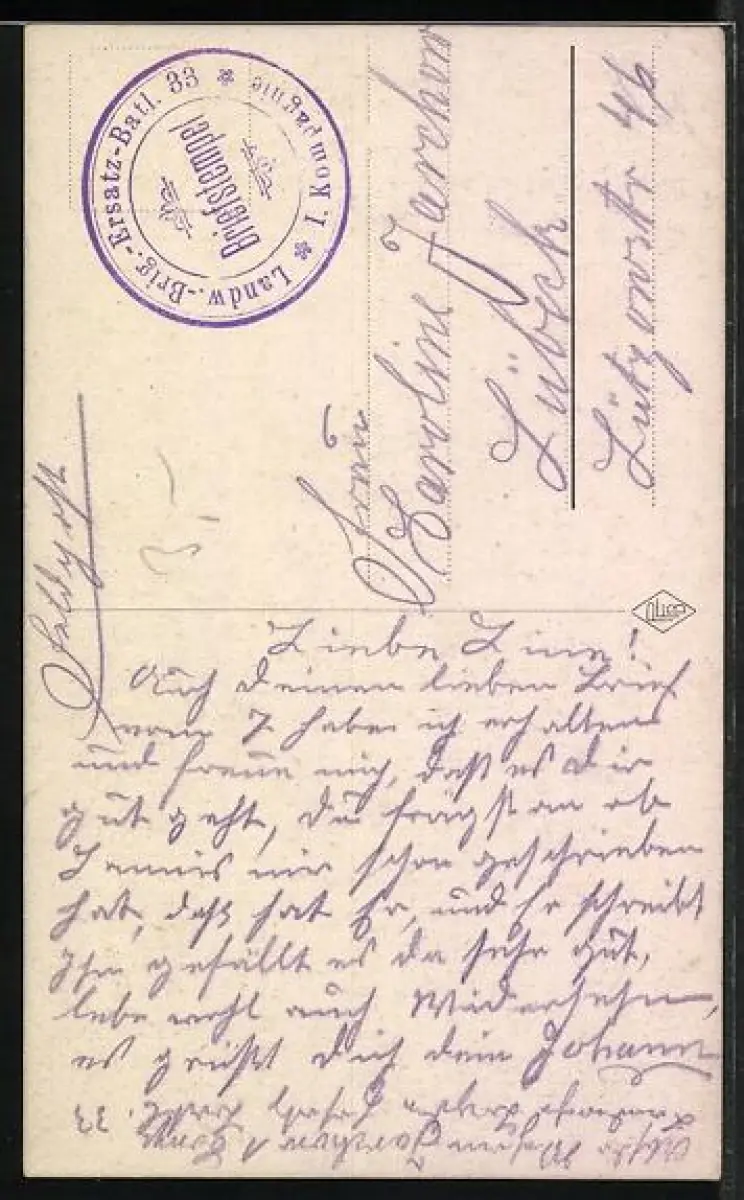 Landw.-Brig.-Ersatz-Batl. 33 * 1. Kompagnie *
Briefstempel
Feldpost
Frau
Caroline Jarchow
Lübeck
Lützowstr 4b
Liebe Line!
Auch Deinen lieben Brief
vom 7 habe ich erhalten
und freue mich, daß es dir
gut geht, du frägst an ob
mir schon geschrieben
hat, daß hat Er, und Er schreibt
Ihm gefällt es da sehr gut,
lebe wohl auch Wiedersehn,
es grüßt dich dein Johann
Jarchow 1 Comp
Ersatz Batl. 33